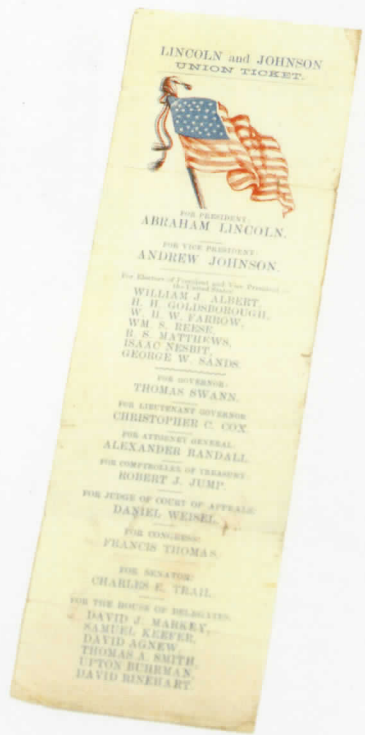 LINCOLN and JOHNSON
UNION TICKET.
FOR PRESIDENT:
ABRAHAM LINCOLN.
FOR VICE PRESIDENT:
ANDREW JOHNSON.
For Electors of President and Vice President of
the United States
WILLIAM J. ALBERT,
H. H. GOLDSBOROUGH,
W. H. W. FARROW,
WM. S. REESE,
R. S. MATTHEWS,
ISAAC NESBIT,
GEORGE W. SANDS.
FOR GOVERNOR:
THOMAS SWANN.
FOR LIEUTENANT GOVERNOR
CHRISTOPHER C. COX.
FOR ATTORNEY GENERAL.
ALEXANDER RANDALL.
FOR COMPTROLLER OF TREASURY:
ROBERT J. JUMP.
FOR JUDGE OF COURT OF APPEALS:
DANIEL WEISEL.
FOR CONGRESS:
FRANCIS THOMAS.
FOR SENATOR:
CHARLES E. TRAIL.
FOR THE HOUSE OF DELEGATES.
DAVID J. MARKEY,
SAMUEL KEEFER,
DAVID AGNEW,
THOMAS A. SMITH,
UPTON BUHRMAN,
DAVID RINEHART.